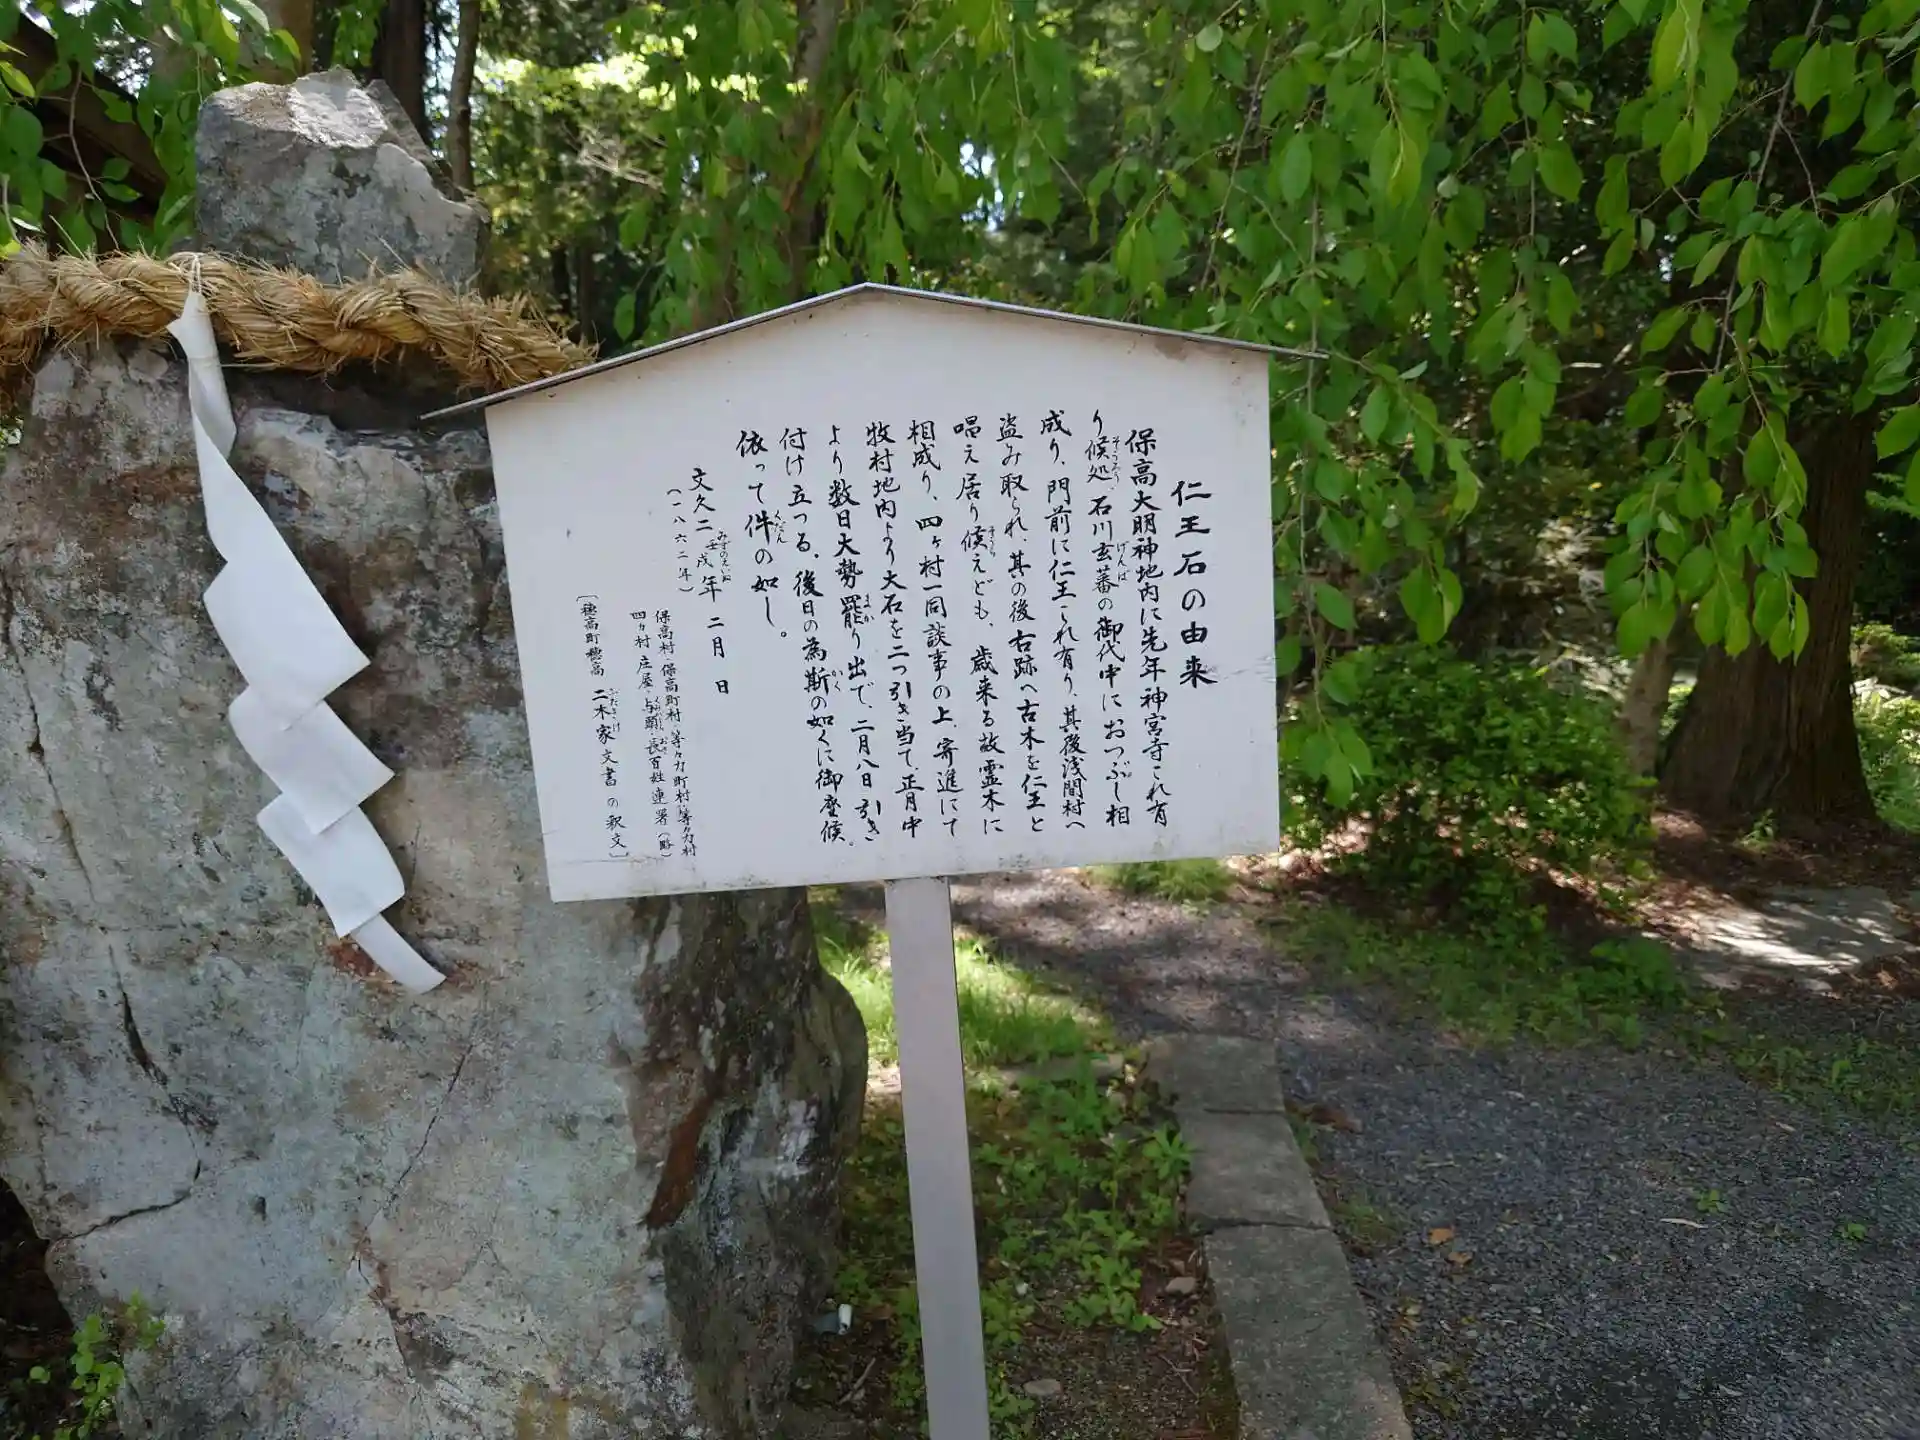 仁王石の由来
保高大明神地内に先年神宮寺これ有
り候処、石川玄蕃の御代中におつぶし相
成り、門前に仁王これ有り、其後浅間村へ
盗み取られ、其の後古跡へ古木を仁王と
唱え居り候えども、歳来る故霊木に
相成り、四ヶ村一同談事の上、寄進にて
牧村地内より大石を二つ引き当て、正月中
より数日大勢罷り出で、二月八日引き
付け立つる、後日の為斯の如くに御座候。
依って件の如し。
文久二壬戌年 二月 日
(一八六二年)
保高村・保高町村・等々力町村・等々力村
四ヶ村 庄屋・与頭・長百姓連署(略)
〔穂高町穂高 二木家文書の釈文〕